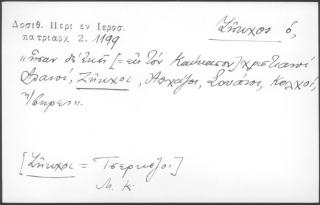 Δοσιθ. Περι εν Ιεροσ.
πατριαρχ 2. 1199
Ζῆκχοι ὁ,
"ἦσαν δὲ ἐκεῖ [= εἰς τὸν Καύκασον] χριστιανοὶ
Ἀλανοί, Ζῆκχοι, Ἀβασγοί, Σουάνοι, Κολχοί,
Ἴβηρες".
[Ζῆκχοι = Τσερκέζοι]
Μ. Κ.